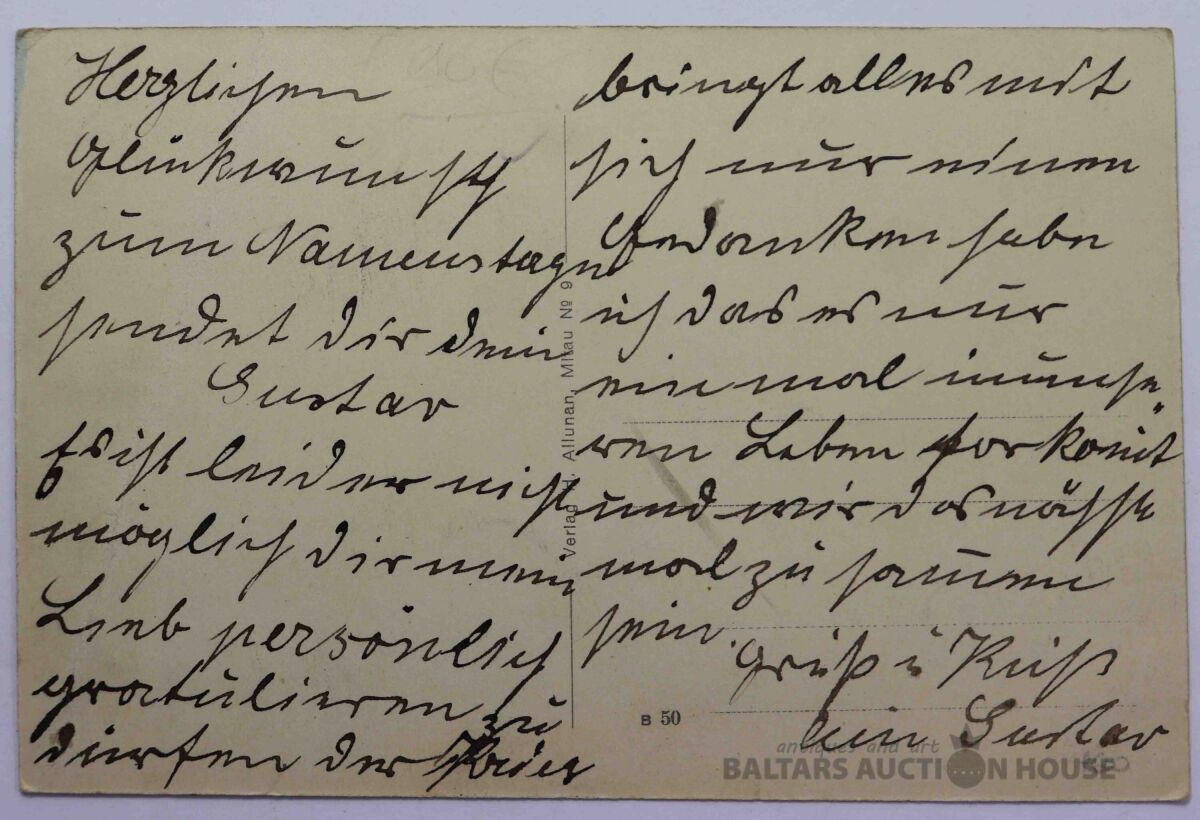 Herzlichen
Glückwunsch
zum Namenstage
sendet dir dein
Gustav
Es ist leider nicht
möglich dir mein
Lieb persönlich
gratulieren zu
dürfen der Krieg
bringt alles mit
sich nur einen
Gedanken habe
ich das es nur
ein mal in unse„
ren Leben forkom̄t
und wir das nächste
mal zu sammen
sein.
Gruß u Kuß
dein Gustav
Verlag Allunan, Mitau № 9
B 50
antiques and art
BALTARS AUCTION HOUSE